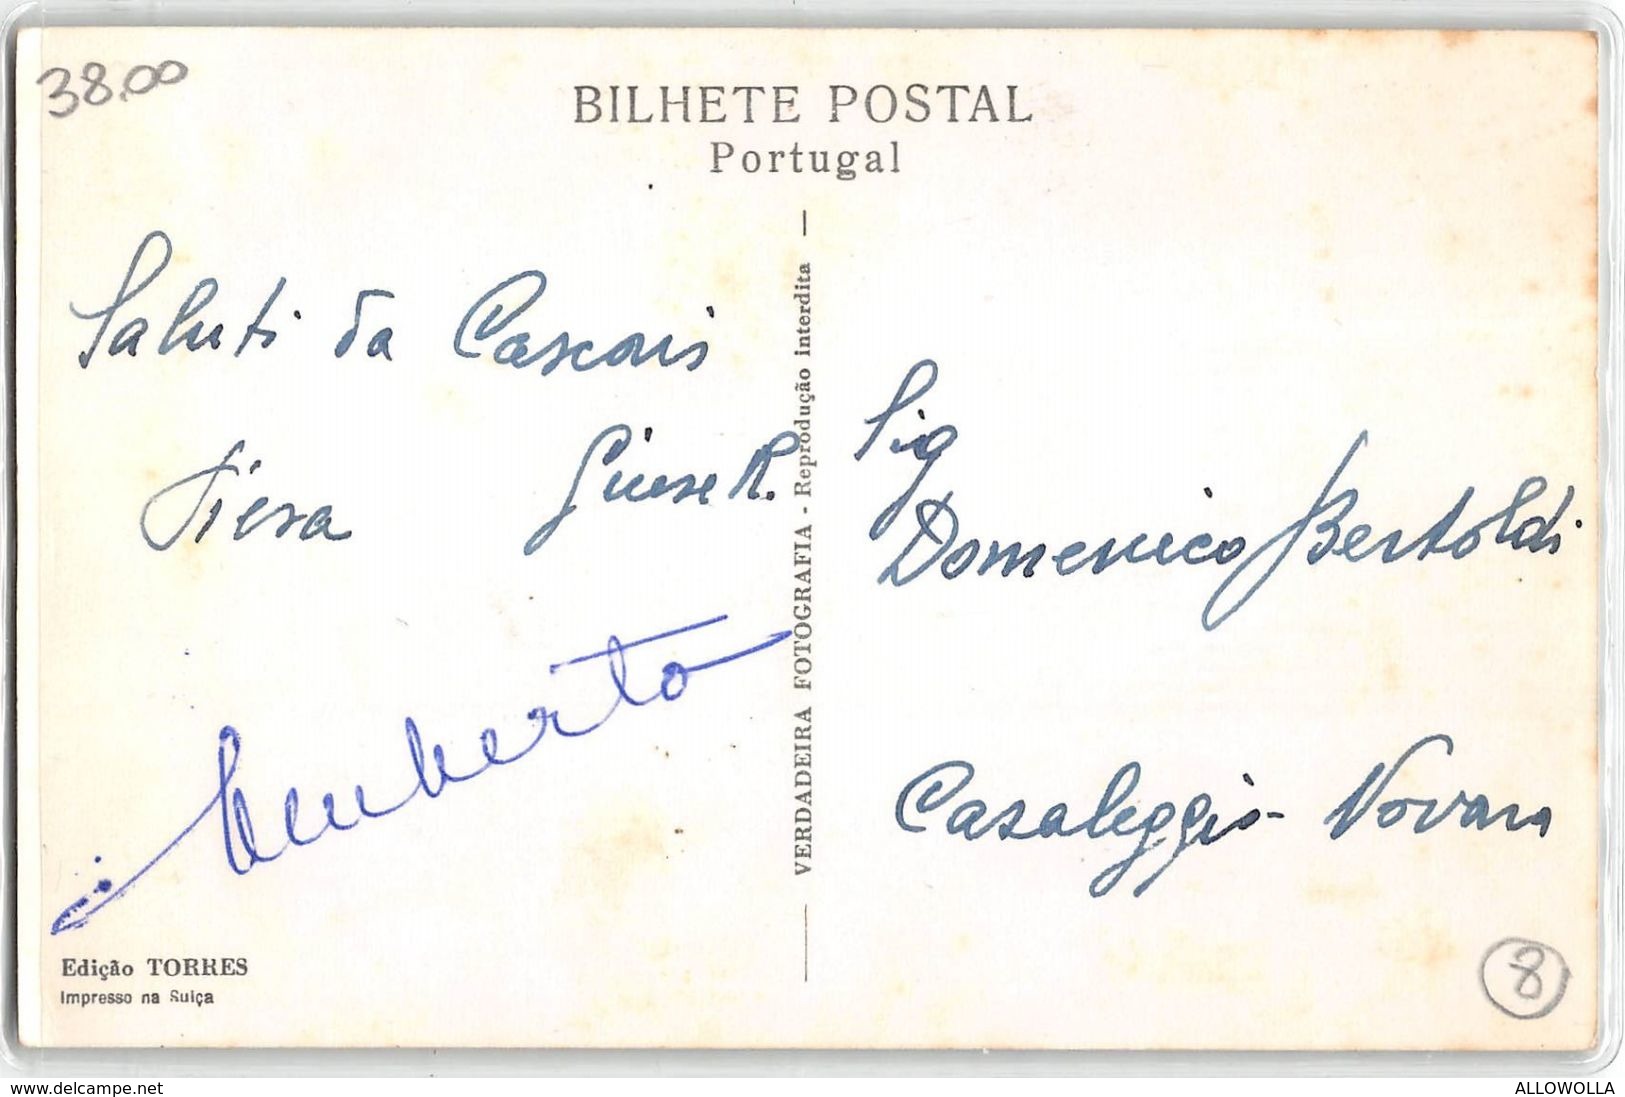 38.00
BILHETE POSTAL
Portugal
Saluti da Cascais
Piera Giuse R.
Umberto
Edição TORRES
Impresso na Suiça
VERDADEIRA FOTOGRAFIA - Reprodução interdita
Sig
Domenico Bertoldi
Casaleggio - Novara
8
www.delcampe.net
ALLOWOLLA